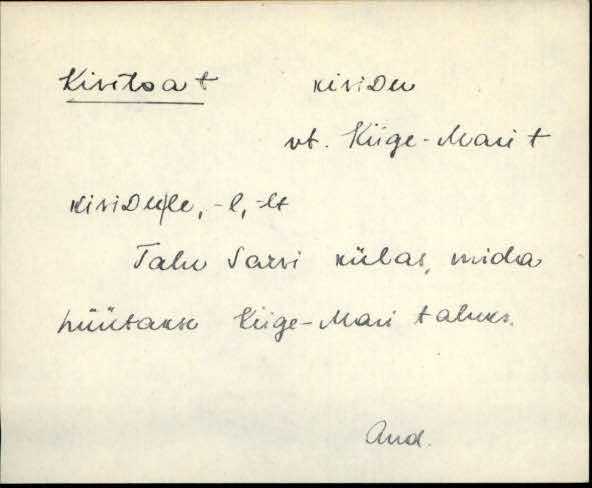 Kiritsa t kiriDu
vt. Kiige-Mari t
kiriDulle, -l, -lt
Talu Sarvi külas, mida
hüütakse Kiige-Mari taluks.
And.